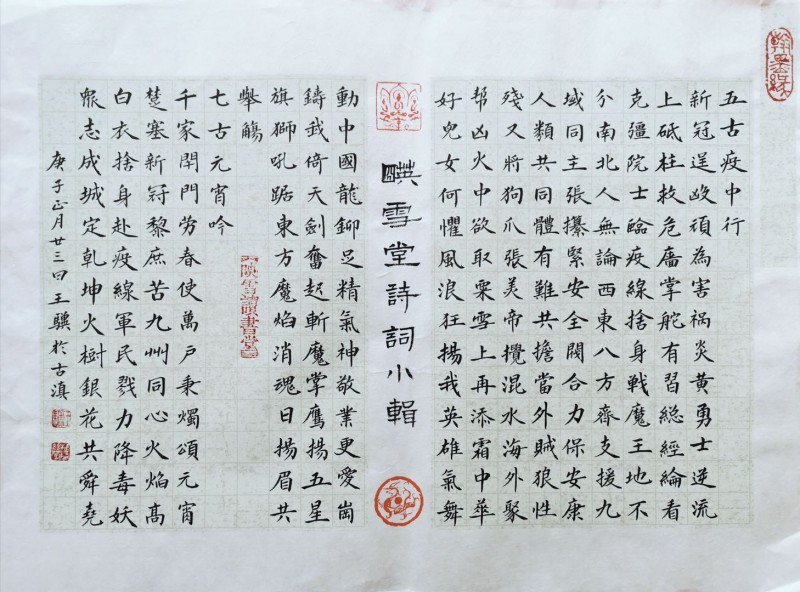 翰墨緣
五古疫中行
新冠逞凶頑為害祸炎黃勇士逆流
上砥柱救危廈掌舵有習總經綸看
克疆院士臨疫線捨身戰魔王地不
分南北人無論西東八方齊支援九
域同主張攥緊安全閥合力保安康
人類共同體有難共擔當外賊狼性
殘又將狗爪張美帝攪混水海外聚
幫凶火中欲取栗雪上再添霜中華
好兒女何懼風浪狂揚我英雄氣舞
雪堂詩詞小輯
動中國龍鉚足精氣神敬業更愛崗
鑄武倚天劍奮起斬魔掌鷹揚五星
旗獅吼踞東方魔焰消魂日揚眉共
舉觴
七古元宵吟
千家閉門勞春使萬戶秉燭頌元宵
楚塞新冠黎庶苦九州同心火焰高
白衣捨身赴疫線軍民戮力降毒妖
眾志成城定乾坤火樹銀花共舜堯
庚子正月廿三日王驥於古滇